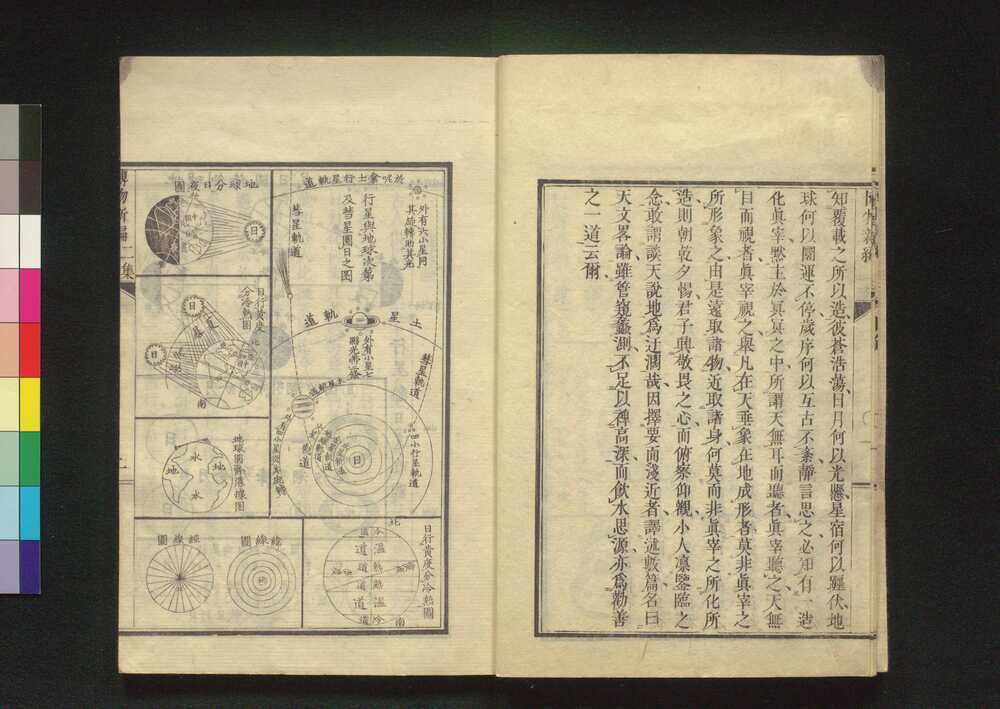 知覆載之所以造彼蒼浩蕩日月何以光懸星宿何以躔伏地
球何以關運不停歲序何以亙古不紊靜言思之必知有一造
化眞宰默主於冥冥之中所謂天無耳而聽者眞宰聽之天無
目而視者眞宰視之舉凡在天垂象在地成形者莫非眞宰之
所形象之由是遠取諸物近取諸身何莫而非眞宰之所化所
造則朝乾夕惕君子興敬畏之心而俯察仰觀小人凛鑒臨之
念敢謂談天說地爲迂濶哉因擇要而淺近者譯述數篇名曰
天文畧論雖管窺蠡測不足以裨高深而飲水思源亦爲勸善
之一道云爾
於呢士行星軌道
外有六小星同
其旋轉助其光
行星與地球次第
及彗星圜日之图
彗星軌道
土星軌道
外有小星七
彗星軌道
四小行星軌道
日
地球分日夜圖
日
日行黃度
分冷熱圖
北
夏
日
日
南
地球圖
水
地
地
水
日行黃度分冷熱圖
北
冷道
溫道
熱道
熱道
溫道
冷道
南
緯線圖
經線圖
博物新編二集